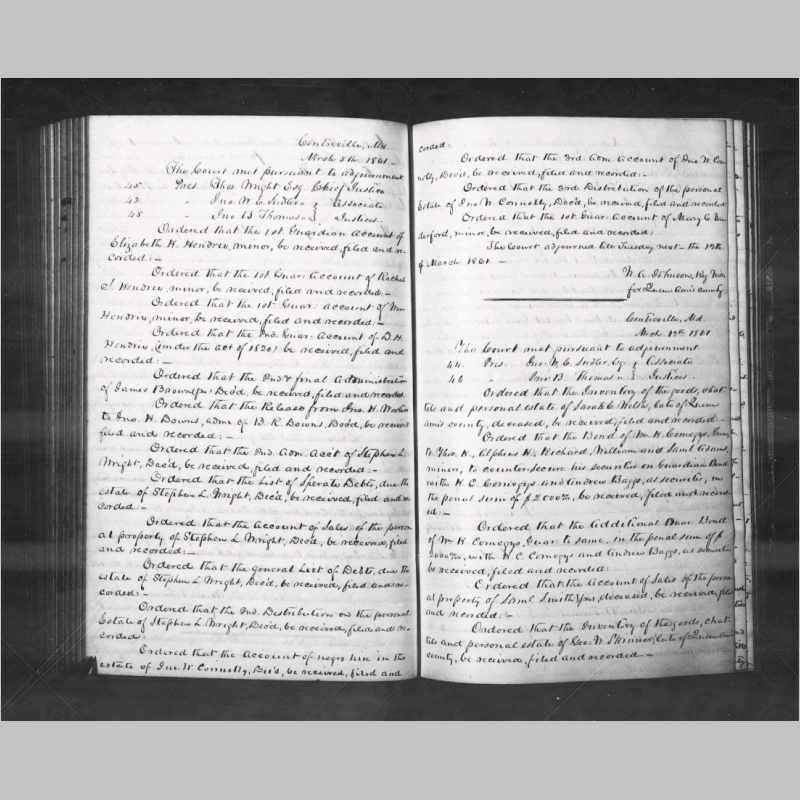 Centreville, Md.
March 5th 1861 –
The Court met pursuant to adjournment
45 Pres. Thos. Wright Esq. Chief Justice
43 " Jno. W. C. Sudler } Associate
45 " Jno. B. Thomas } Justices.
Ordered that the 1st Guardian Account of
Elizabeth H. Hendrix, minor, be received, filed and re-
corded: –
Ordered that the 1st Guar: Account of Rachel
S. Hendrix, minor, be received, filed and recorded: –
Ordered that the 1st Guar: account of Wm
Hendrix, minor, be received, filed and recorded: –
Ordered that the 2nd. Guar: Account of D. H.
Hendrix, (under the act of 1830) be received, filed and
recorded: –
Ordered that the 2nd & final Administration
of James Brown, Decd, be received, filed and recorded.
Ordered that the Release from Jno. H.
to Jno. H. Downs, admr. of B. R. Downs, Decd, be received
filed and recorded: –
Ordered that the 2nd. Adm. Acct of Stephen L.
Wright, Decd, be received, filed and recorded: –
Ordered that the List of Sperate Debts, due the
estate of Stephen L. Wright, Decd, be received, filed and re-
corded: –
Ordered that the Account of Sales of the person
al property of Stephen L. Wright, Decd, be received, filed
and recorded: –
Ordered that the general List of Debts, due the
estate of Stephen L. Wright, Decd, be received, filed and re-
corded: –
Ordered that the 2nd. Distribution on the personal
Estate of Stephen L. Wright, Decd, be received, filed and re-
corded.
Ordered that the Account of negro hire in the
estate of Jno. W. Connolly, Decd, be received, filed and
corded.
Ordered that the 3rd. Adm. account of Jno. W. Con-
nolly, Decd, be received, filed and recorded: –
Ordered that the 3rd Distribution of the personal
Estate of Jno W. Connolly, Decd, be received, filed and recorded
Ordered that the 1st Guar: Account of Mary C.
minor, be received, filed and recorded:
The Court adjourned till Tuesday next – the 12th.
of March 1861 –
W. A. Johnson, Reg Wills
for Queen Ann's County
Centreville, Md.
March 12th 1861
The Court met pursuant to adjournment
44 Pres. Jno. W. C. Sudler, Esq. } Associate
46 " Jno. B. Thomas } Justices –
Ordered that the Inventory of the goods, chat-
tels and personal estate of Sarah C. late of Queen
Ann's County, deceased, be received, filed and recorded –
Ordered that the Bond of Wm. H. Comegys, Guar
to Thos. H., Alphens H., Richard, William and Saml.
minors, to countersecure his securities on Guardian Bond
with H. C. Comegys and Andrew Baggs, as securities, in
the penal sum of $2000, be received, filed and record-
ed: –
Ordered that the Additional Guar. Bond
of Wm H Comegys, Guar to same, in the penal sum of $
2000, with H. C. Comegys and Andrew Baggs, as securities
be received, filed and recorded:
Ordered that the Account of Sales of the person
al property of Saml. Smith, deceased, be received, filed
and recorded: –
Ordered that the Inventory of the goods, chat-
tels and personal estate of Geo. W. late of Queen Ann
county, be received, filed and recorded –